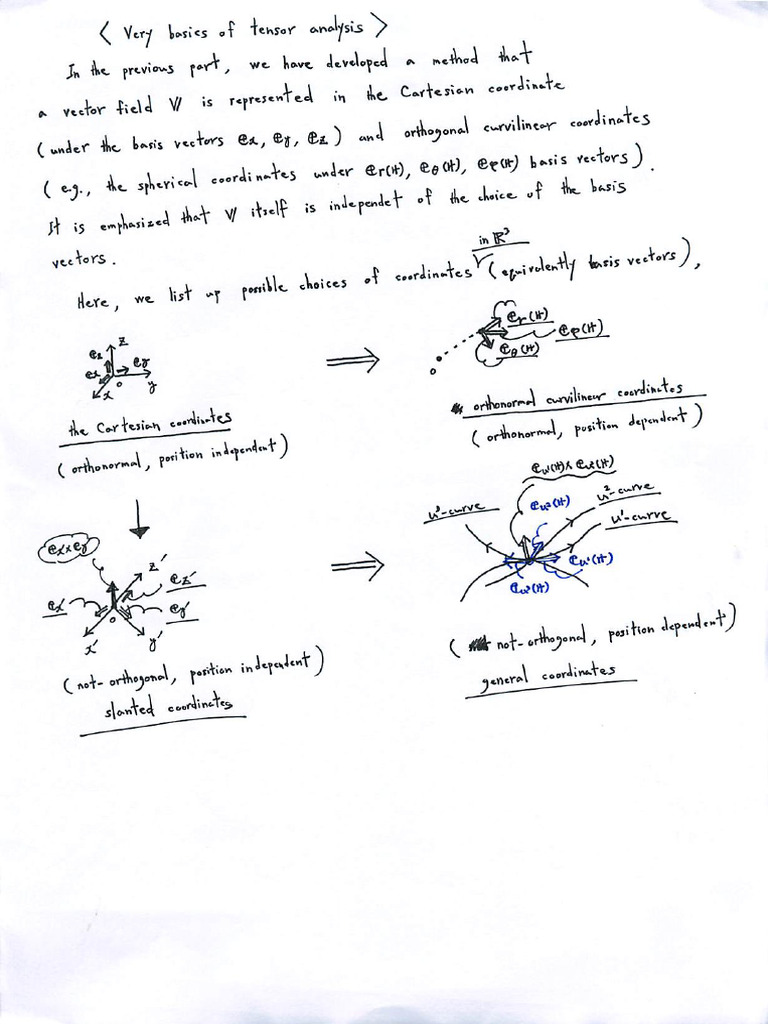 < Very basics of tensor analysis >
In the previous part, we have developed a method that
a vector field V is represented in the Cartesian coordinate
(under the basis vectors ex, ey, ez) and orthogonal curvilinear coordinates
(e.g., the spherical coordinates under er(r), eθ(r), eφ(r) basis vectors).
It is emphasized that V itself is independet of the choice of the basis
vectors.
in R³
Here, we list up possible choices of coordinates (equivalently basis vectors),
z
ez
ey
ex
o
y
x
⇒
er(r)
eφ(r)
eθ(r)
o
the Cartesian coordinates
(orthonormal, position independent)
orthonormal curvilinear coordinates
(orthonormal, position dependent)
↓
ez'
z'
ex'
ey'
o
x'
y'
⇒
u³-curve
eu²(r)
u²-curve
u¹-curve
eu¹(r)
eu³(r)
(not-orthogonal, position independent)
slanted coordinates
(not-orthogonal, position dependent)
general coordinates